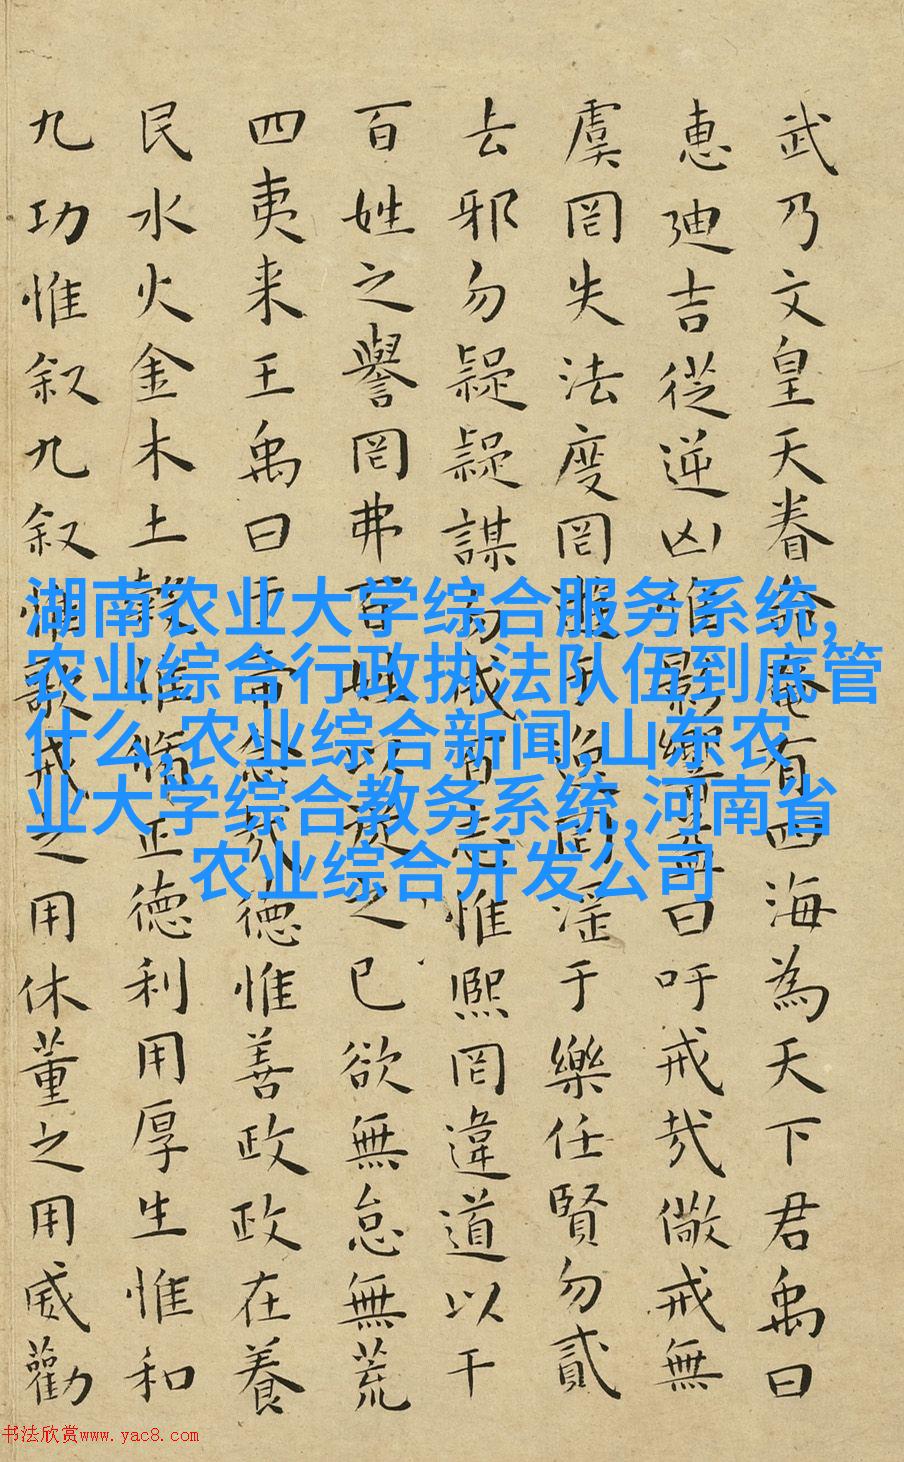 武乃文皇天眷命奄有四海為天下君禹曰
惠迪吉從逆凶惟影響益曰吁戒哉儆戒無
虞罔失法度罔于逸罔淫于樂任賢勿貳
去邪勿疑疑謀勿成百志惟熙罔違道以干
百姓之譽罔弗百姓以從之已欲無怠無荒
四夷来王禹曰於帝念哉德惟善政政在養
民水火金木土穀惟脩正德利用厚生惟和
九功惟叙九叙惟歌戒之用休董之用威勸
湖南农业大学综合服务系统,
农业综合行政执法队伍到底管
什么,农业综合新闻,山东农
业大学综合教务系统,河南省
农业综合开发公司
书法欣赏www.yac8.com